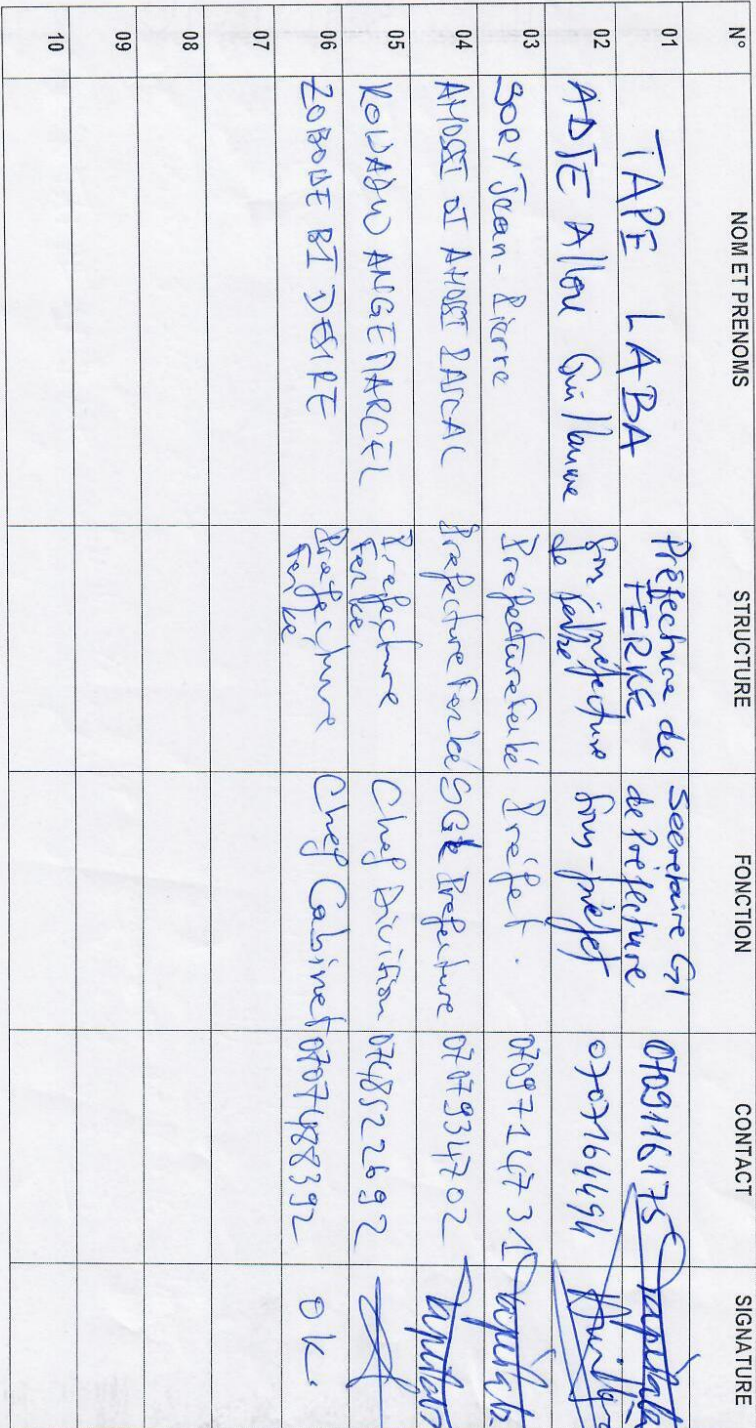 N° NOM ET PRENOMS STRUCTURE FONCTION CONTACT SIGNATURE
01 TAPE LABA Préfecture de FERKE Secretaire Gl de Préfecture 0709116175
02 ADJE Allou Guillaume Sous-préfecture de Sous-préfet 0707164494
03 SORY Jean-Pierre Préfecture Ferké Préfet. 0709714731
04 AHOSSI DI AHOSSI PASCAL Prefecture Ferké SG Prefecture 0707934702
05 KOUADIO ANGE MARCEL Prefecture Ferké Chef Division 0748522692
06 ZOBODE BI DESIRE Prefecture Ferké Chef Cabinet 0707488392 OK.
07
08
09
10